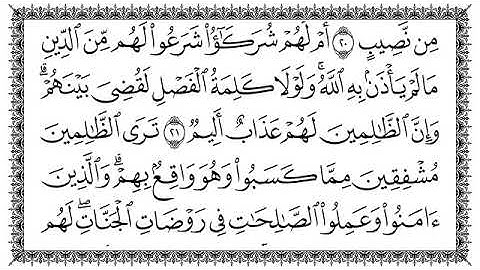 مِن نَّصِيبٍ ٢٠ أَمْ لَهُمْ شُرَكَٰٓؤُا۟ شَرَعُوا۟ لَهُم مِّنَ ٱلدِّينِ
مَا لَمْ يَأْذَنۢ بِهِ ٱللَّهُ ۚ وَلَوْلَا كَلِمَةُ ٱلْفَصْلِ لَقُضِىَ بَيْنَهُمْ ۗ
وَإِنَّ ٱلظَّٰلِمِينَ لَهُمْ عَذَابٌ أَلِيمٌ ٢١ تَرَى ٱلظَّٰلِمِينَ
مُشْفِقِينَ مِمَّا كَسَبُوا۟ وَهُوَ وَاقِعٌۢ بِهِمْ ۗ وَٱلَّذِينَ
ءَامَنُوا۟ وَعَمِلُوا۟ ٱلصَّٰلِحَٰتِ فِى رَوْضَاتِ ٱلْجَنَّاتِ ۖ لَهُم